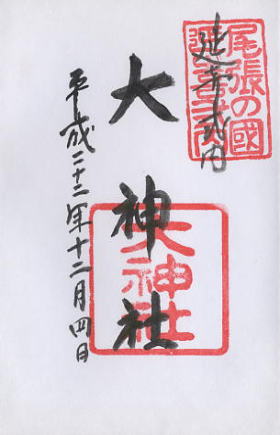 尾張の國
延喜式内
大神社
大神社
平成二十二年十二月四日